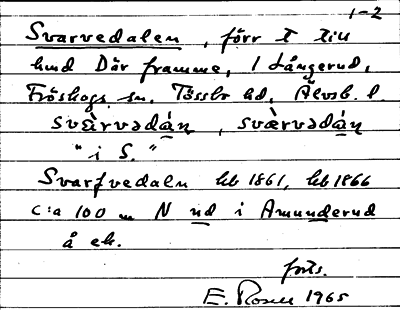 1-2
Svarvedalen, förr T till
hmd Där framme, 1 Långerud,
Fröskogs sn. Tössbo hd, Älvsb. l.
svàrvədán, svæ̀rvədán
"i S."
Svarfvedalen hb 1861, hb 1866
c:a 100 m N nd i Amunderud
å ek.
forts.
E. Rosell 1965